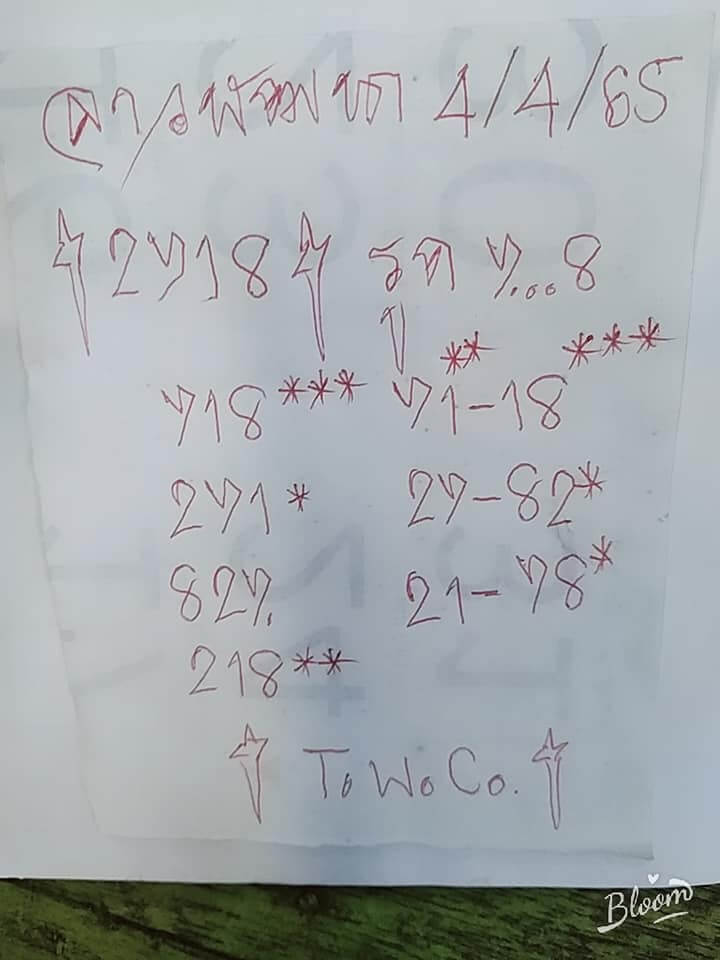 ลาวพัฒนา 4/4/65
2718 รูด 7...8
** ***
718*** 71-18
271* 27-82*
827. 21-78*
218**
To Wo Co.
Bloom